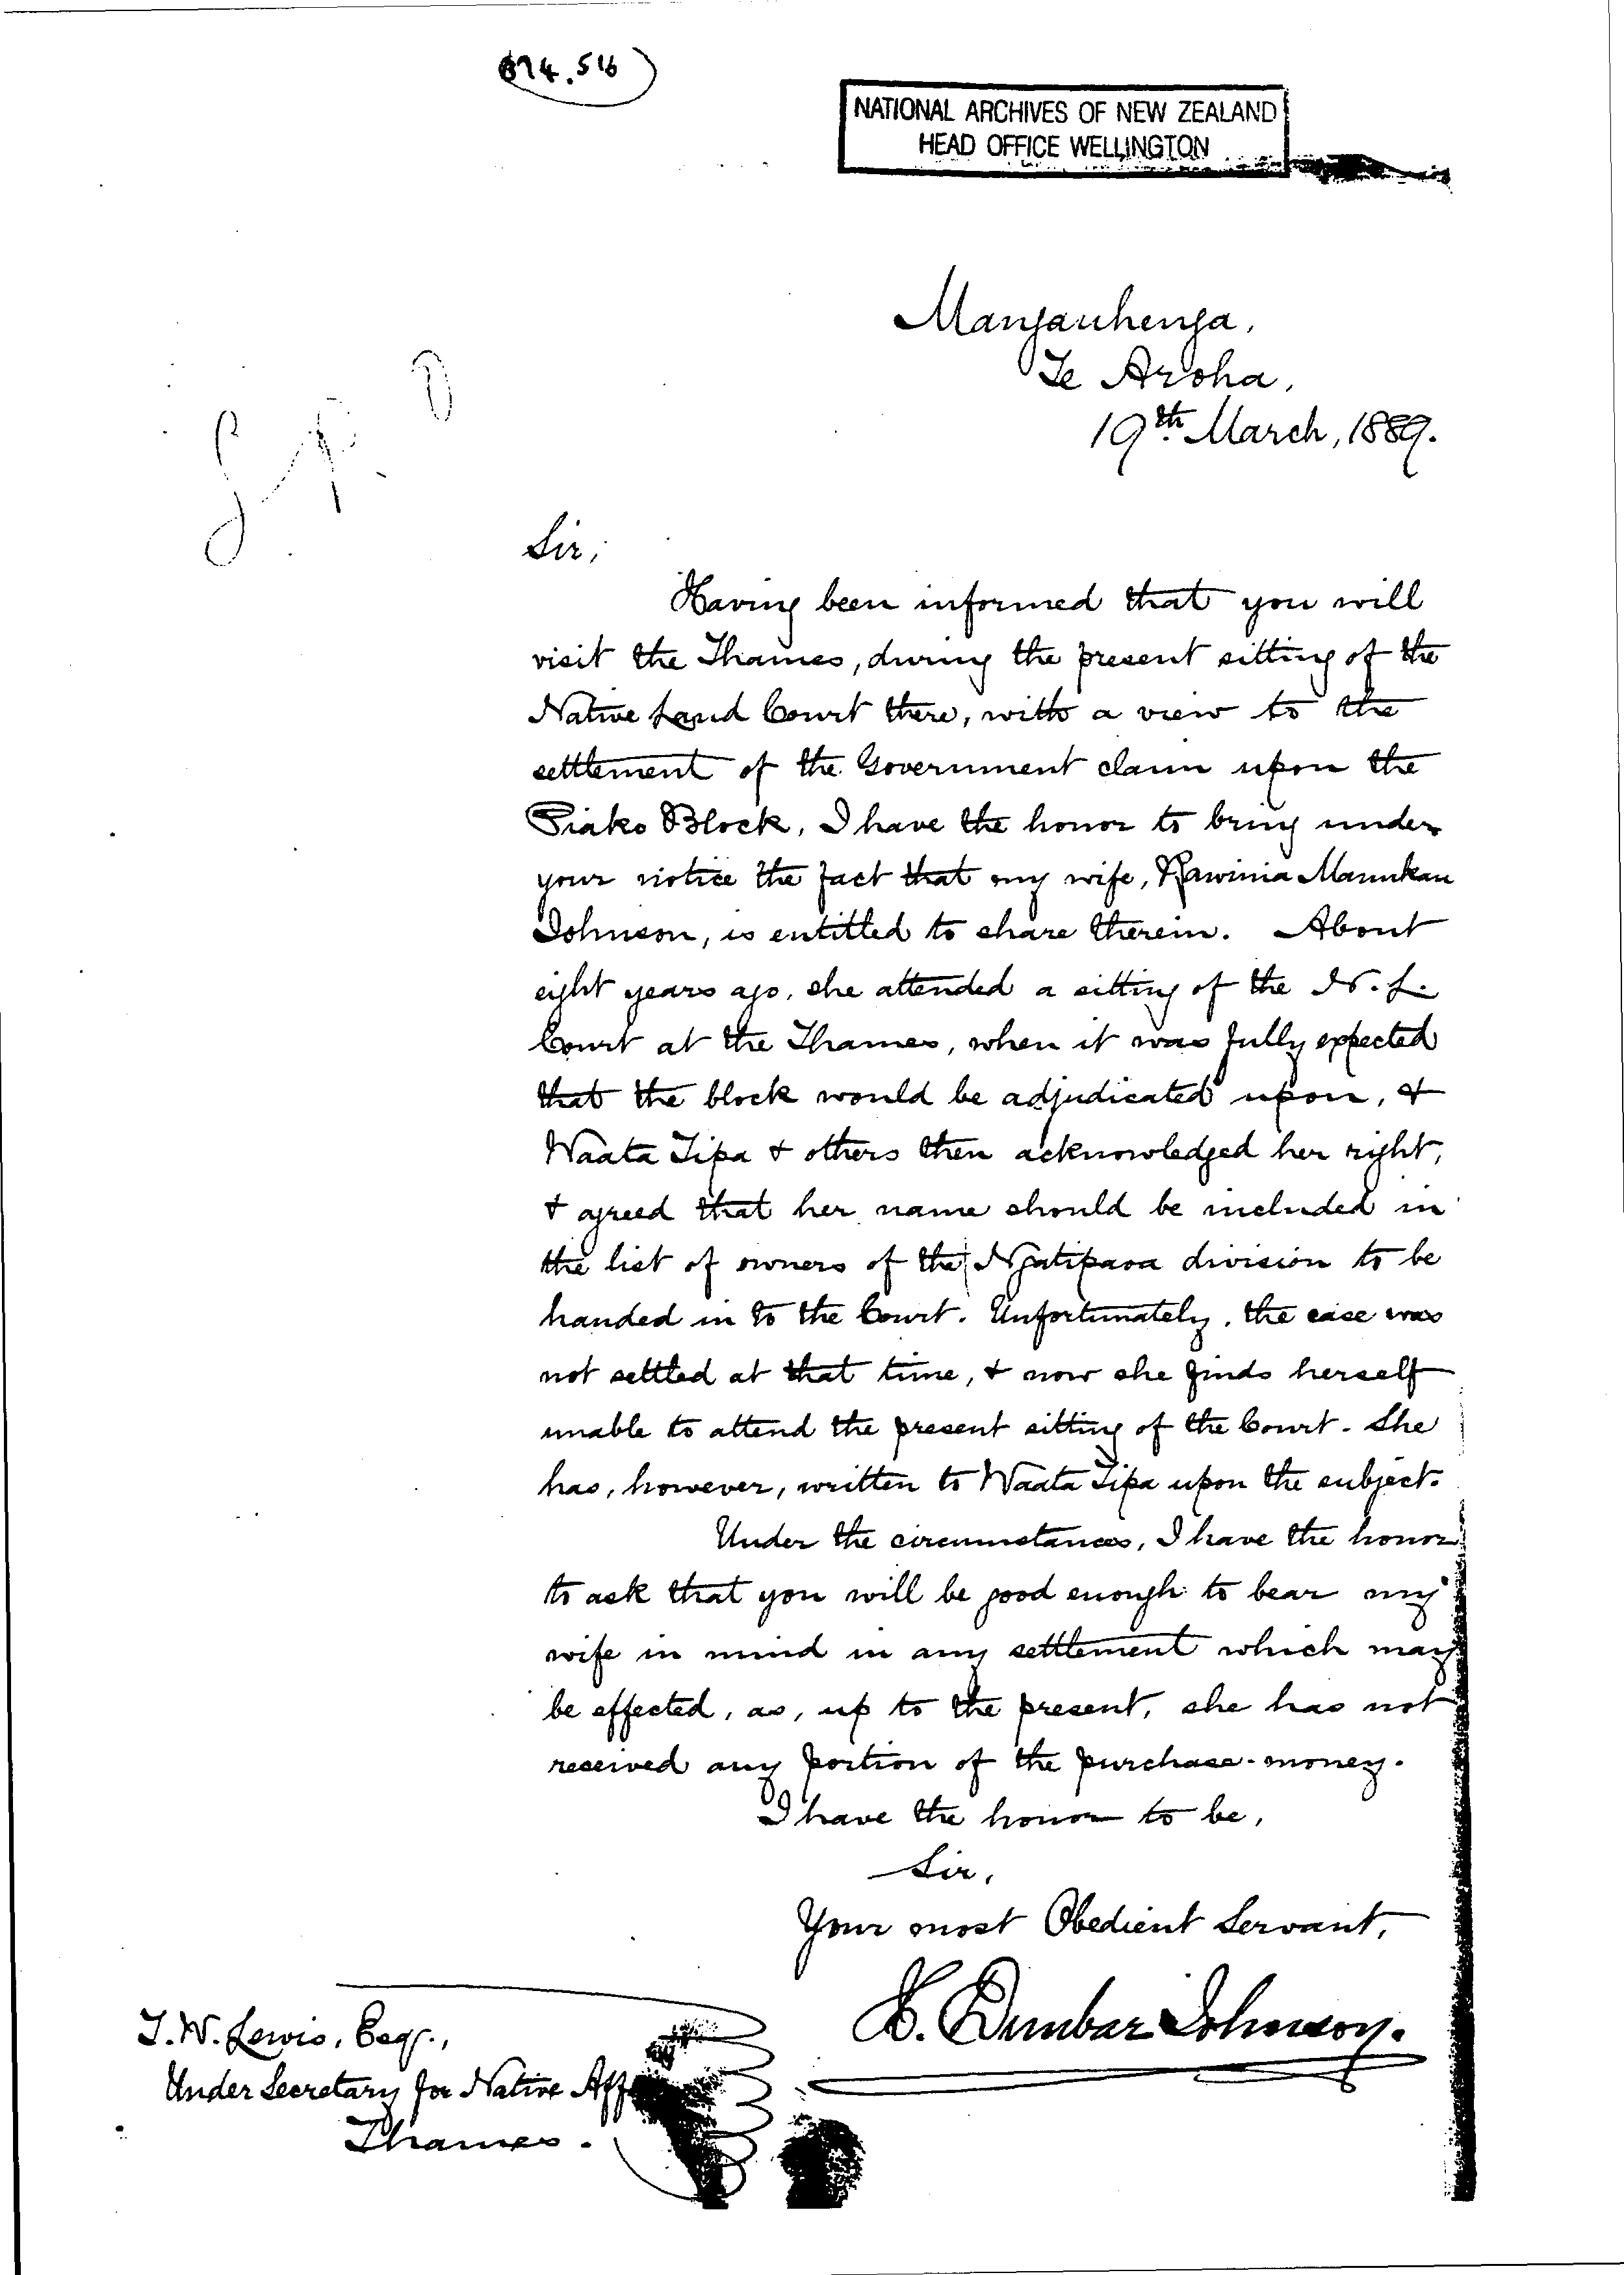 NATIONAL ARCHIVES OF NEW ZEALAND
HEAD OFFICE WELLINGTON
Te Aroha,
19th March, 1889.
Sir,
Having been informed that you will
visit the Thames, during the present sitting of the
Native Land Court there, with a view to the
settlement of the Government claim upon the
Piako Block, I have the honor to bring under
your notice the fact that my wife, Rawinia Manukau
Johnson, is entitled to share therein. About
eight years ago, she attended a sitting of the N. L.
Court at the Thames, when it was fully expected
that the block would be adjudicated upon, &
Waata Tipa & others then acknowledged her right,
& agreed that her name should be included in
the list of owners of the Ngatipaoa division to be
handed in to the Court. Unfortunately, the case was
not settled at that time, & now she finds herself
unable to attend the present sitting of the Court. She
has, however, written to Waata Tipa upon the subject.
Under the circumstances, I have the honor
to ask that you will be good enough to bear my
wife in mind in any settlement which may
be effected, as, up to the present, she has not
received any portion of the purchase-money.
I have the honor to be,
Sir,
Your most Obedient Servant,
Dunbar Johnson.
T. W. Lewis, Esq.,
Under Secretary for Native Aff
Thames.